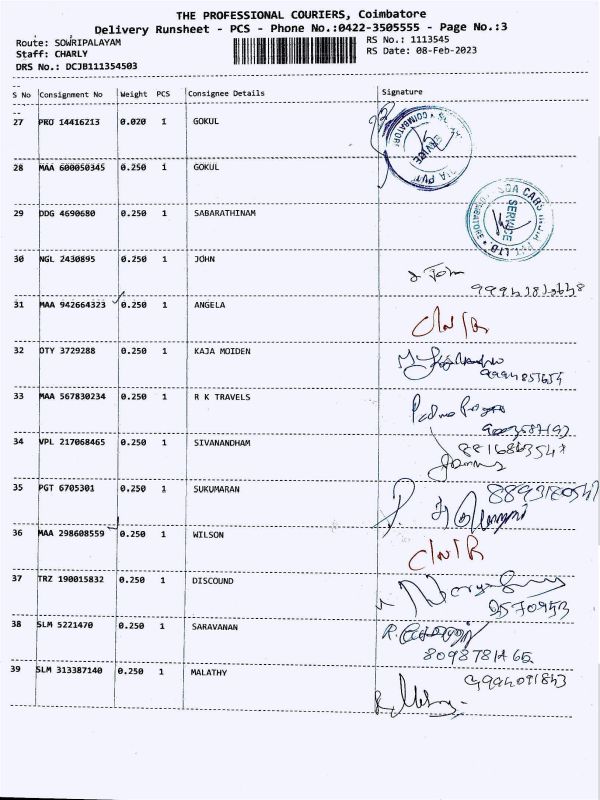 THE PROFESSIONAL COURIERS, Coimbatore
Delivery Runsheet - PCS - Phone No.:0422-3505555 - Page No.:3
Route: SOWRIPALAYAM RS No.: 1113545
Staff: CHARLY RS Date: 08-Feb-2023
DRS No.: DCJB111354503
S No Consignment No Weight PCS Consignee Details Signature
27 PRO 14416213 0.020 1 GOKUL
28 MAA 600050345 0.250 1 GOKUL
29 DDG 4690680 0.250 1 SABARATHINAM
SERVICE
30 NGL 2430895 0.250 1 JOHN
John
31 MAA 942664323 0.250 1 ANGELA
C/N/R
32 OTY 3729288 0.250 1 KAJA MOIDEN
9994857654
33 MAA 567830234 0.250 1 R K TRAVELS
34 VPL 217068465 0.250 1 SIVANANDHAM
35 PGT 6705301 0.250 1 SUKUMARAN
36 MAA 298608559 0.250 1 WILSON
C/N/R
37 TRZ 190015832 0.250 1 DISCOUND
38 SLM 5221470 0.250 1 SARAVANAN
8098781465
39 SLM 313387140 0.250 1 MALATHY